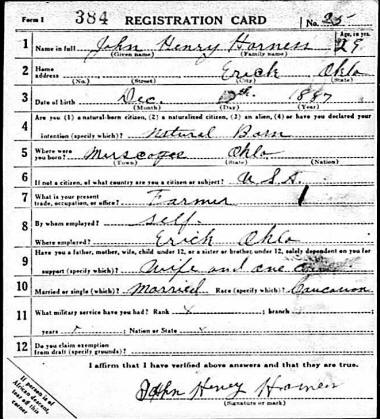 Form 1 384 REGISTRATION CARD No. 25
1 Name in full John Henry Harness Age, in yrs. 29
(Given name) (Family name)
2 Home address Erick Okla
(No.) (Street) (City) (State)
3 Date of birth Dec. 1887
(Month) (Day) (Year)
4 Are you (1) a natural-born citizen, (2) a naturalized citizen, (3) an alien, (4) or have you declared your
intention (specify which)? Natural Born
5 Where were you born? Muscogee Okla
(Town) (State) (Nation)
6 If not a citizen, of what country are you a citizen or subject? U.S.A.
7 What is your present trade, occupation, or office? Farmer
8 By whom employed? Self.
Where employed? Erick Okla
9 Have you a father, mother, wife, child under 12, or a sister or brother under 12, solely dependent on you for
support (specify which)? Wife and one
10 Married or single (which)? Married Race (specify which)? Caucasian
11 What military service have you had? Rank x ; branch
years ; Nation or State x
12 Do you claim exemption from draft (specify grounds)?
I affirm that I have verified above answers and that they are true.
John Henry Harness
(Signature or mark)
If person is of African descent, tear off this corner